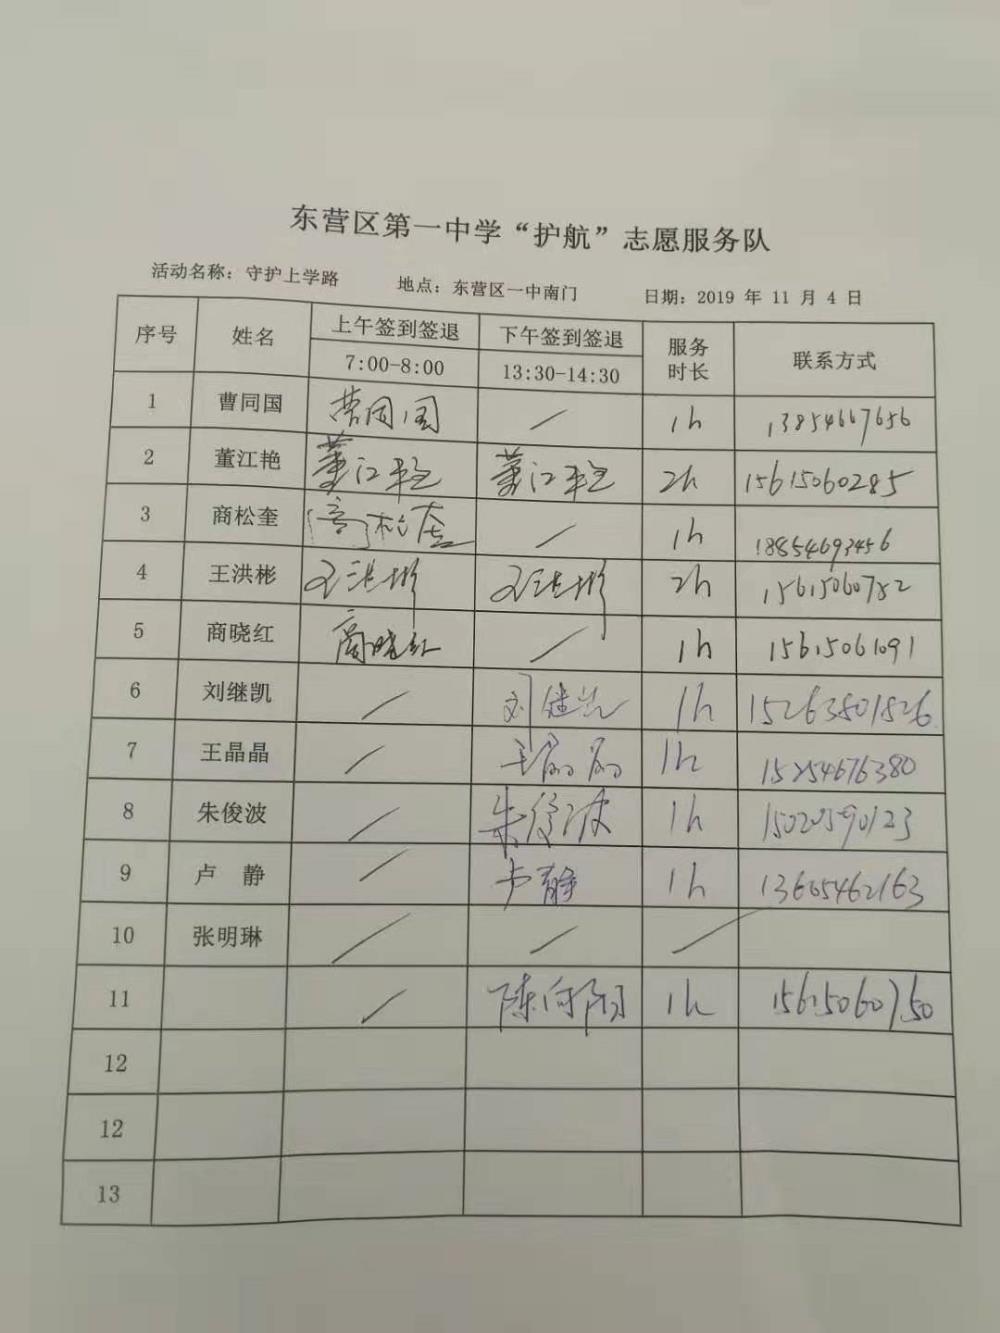 东营区第一中学“护航”志愿服务队
活动名称：守护上学路 地点：东营区一中南门 日期：2019 年 11 月 4 日
序号 姓名 上午签到签退 下午签到签退 服务时长 联系方式
7:00-8:00 13:30-14:30
1 曹同国 曹同国 / 1h 13854667656
2 董江艳 董江艳 董江艳 2h 15615060285
3 商松奎 商松奎 / 1h 18854693456
4 王洪彬 王洪彬 王洪彬 2h 15615060782
5 商晓红 商晓红 / 1h 15615061091
6 刘继凯 / 刘继凯 1h 15263801826
7 王晶晶 / 王晶晶 1h 15254676380
8 朱俊波 / 朱俊波 1h 15020590123
9 卢 静 / 卢静 1h 13605462163
10 张明琳 / / /
11 / 陈向阳 1h 15615060750
12
12
13